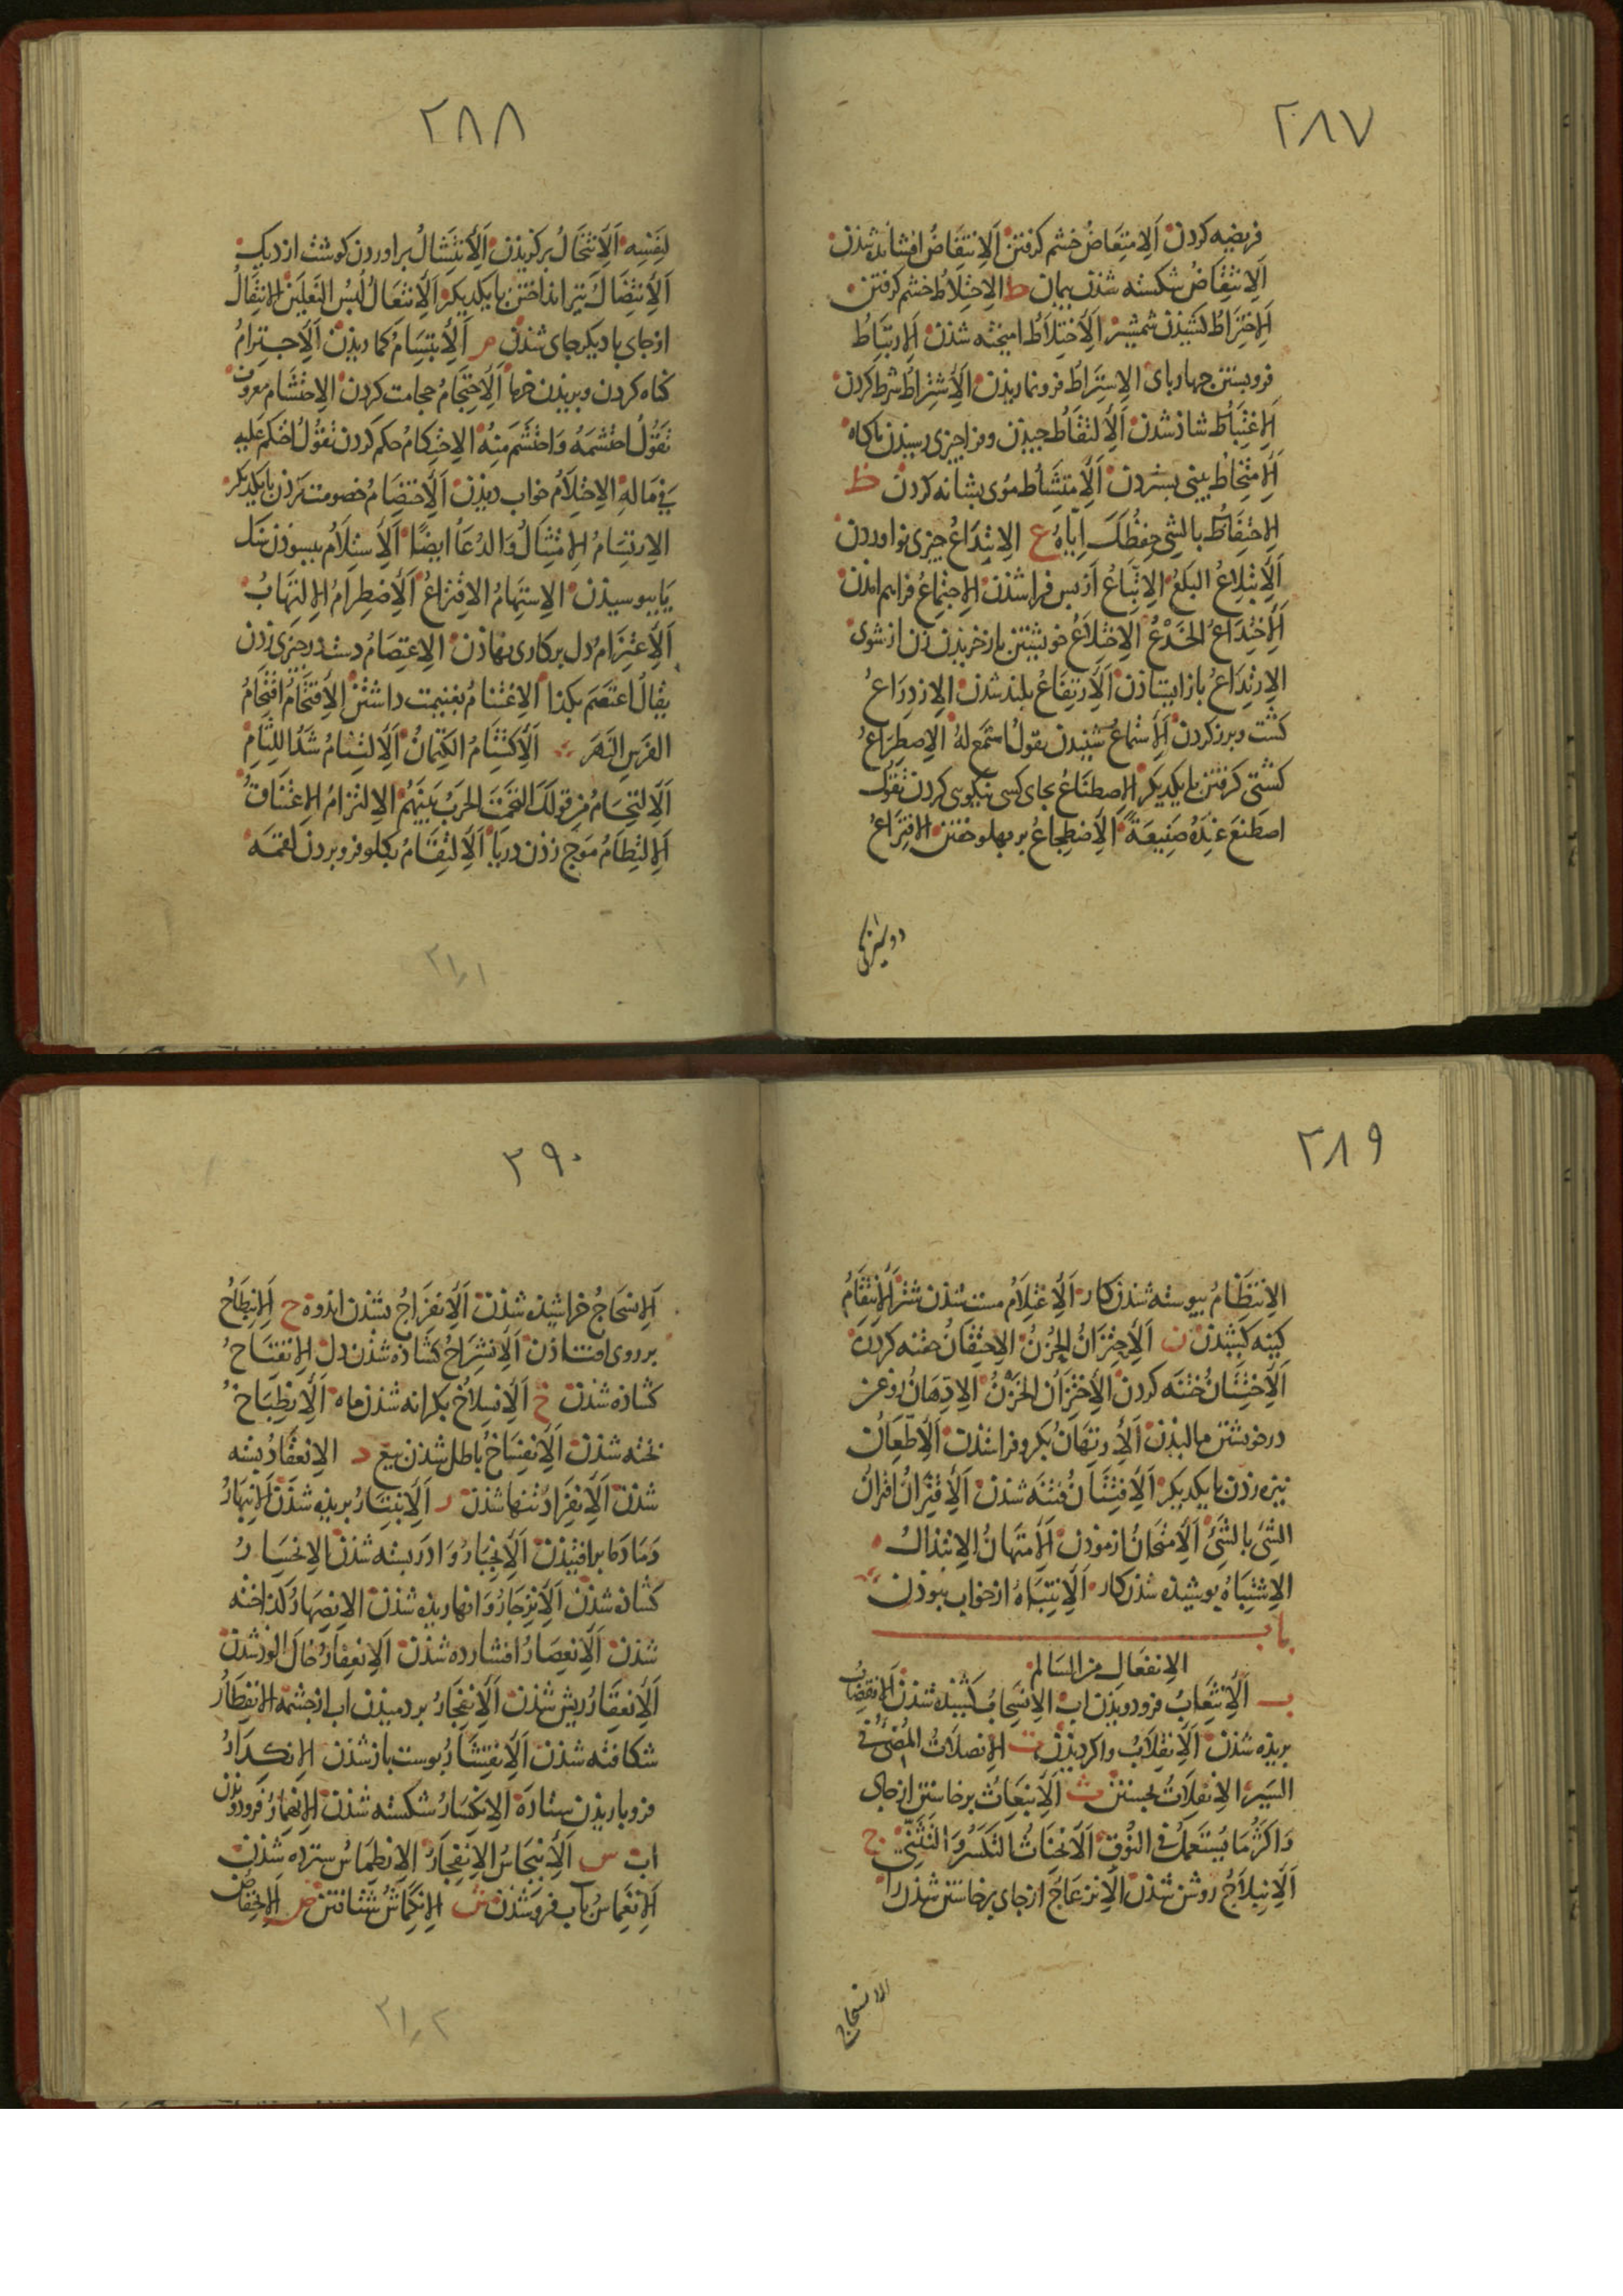 ٢٨٧
فریضه کردن الامتعاض خشم کرفتن الانتفاض افشانده شذن
الانتقاض شکسته شذن پیمان ط الاختلاط خشم کرفتن
الاختراط کشیذن شمشیر الاختلاط امیخته شذن الارتباط
فروبستن جهاربای الاستراط فروناریذن الاشتراط شرط کردن
الاغتباط شاذ شذن الالتقاط جیذن وفراجیزی رسیذن ناکاه
الامتخاط بینی بشردن الامتشاط موی بشانه کردن ظ
الاحتفاظ بالشی حفظک ایاه ع الابتداع جیزی نو اوردن
الابتلاع البلع الاتباع از بس فرا شذن الاجتماع فراهم امذن
الاختداع الخدع الاختلاع خویشتن باز خریذن زن از شوی
الارتداع باز ایستاذن الارتفاع بلند شذن الازدراع
کشت وبرز کردن الاستماع شنیدن یقول استمع له الاصطراع
کشتی کرفتن با یکدیکر الاصطناع بجای کسی نیکویی کردن تقول
اصطنع عنده صنیعة الاضطجاع بر بهلو خفتن الافتراع
دوشیزکی
٢٨٨
لنفسه الانتخال برکزیذن الانتشال براوردن کوشت از دیک
الانتضال تیر انداختن با یکدیکر الانتعال لبس النعلین الانتقال
از جای با دیکر جای شذن م الابتسام کماریذن الاجترام
کناه کردن وبریذن خرما الاحتجام حجامت کردن الاحتشام معروف
تقول احتشمه واحتشم منه الاحتکام حکم کردن تقول احتکم علیه
فی ماله الاحتلام خواب دیذن الاختصام خصومت کردن با یکدیکر
الارتسام الامتثال والدعا ایضا الاستلام ببسوذن سنک
یا ببوسیذن الاستهام الاقتراع الاضطرام الالتهاب
الاعتزام دل بر کاری نهاذن الاعتصام دست در جیزی زذن
یقال اعتصم بکذا الاغتنام بغنیمت داشتن الاقتحام اقتحام
الفرس النهر الاکتتام الکتمان الالتثام شد اللثام
الالتحام من قولک التحمت الحرب بینهم الالتزام الاعتناق
الالتطام موج زذن دریا الالتقام بکلو فرو بردن لقمه
٢١ر١
٢٨٩
الانتظام بیوسته شذن کار الاغتلام مست شذن شتر الانتقام
کینه کشیذن ن الاحتزان الحزن الاحتقان حقنه کردن
الاختتان ختنه کردن الاختزان الخزن الادهان روغن
در خویشتن مالیذن الارتهان بکرو فرا ستذن الاطعان
نیزه زذن با یکدیکر الافتتان فتنه شذن الاقتران اقتران
الشیء بالشیء الامتحان ازموذن الامتهان الابتذال
الاشتباه بوشیذه شذن کار الانتباه از خواب ببوذن
باب
الانفعال من السالم
ب الانثعاب فرو دویذن اب الانسحاب کشیذه شذن الانقضاب
بریذه شذن الانقلاب واکردیذن ت الانصلات المضی فی
السیر الانفلات بجستن ث الانبعاث برخاستن از جای
واکثر ما یستعمل فی النوق الانخناث التکسر والتثنی ج
الانبلاج روشن شذن الانزعاج از جای برخاستن شذن را
الانسحاج
٣٩٠
الانسحاج خراشیذه شذن الانفراج بشذن اندوه ح الانبطاح
بر روی افتاذن الانشراح کشاذه شذن دل الانفتاح
کشاذه شذن خ الانسلاخ بکرانه شذن ماه الانطباخ
بخته شذن الانفساخ باطل شذن بیع د الانعقاد بسته
شذن الانفراد تنها شذن ر الانبتار بریذه شذن الانبهار
دمادما برافتیذن الانجبار وادربسته شذن الانحسار
کشاذه شذن الانزجار وانهاریذه شذن الانصهار کداخته
شذن الانعصار افشارده شذن الانعفار خاک الود شذن
الانعقار ریش شذن الانفجار بردمیذن اب از جشمه الانفطار
شکافته شذن الانقشار بوست باز شذن الانکدار
فرو باریذن ستاره الانکسار شکسته شذن الانهمار فرودویذن
اب س الانبجاس الانفجار الانطماس سترده شذن
الانغماس باب فرو شذن ش الانکماش شتافتن ض الانخفاض
٢١ر٢